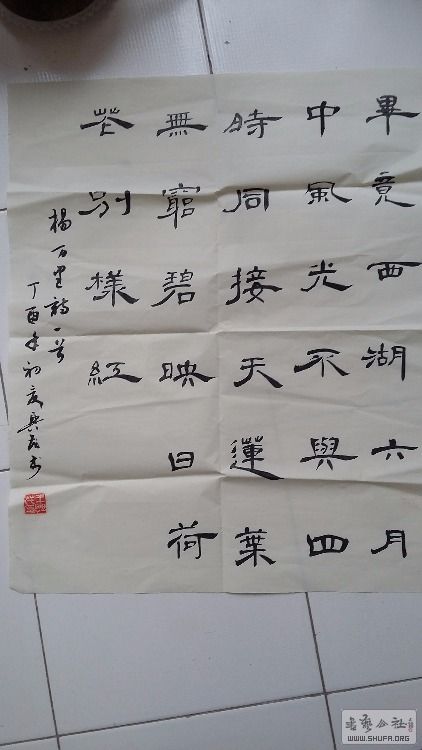 畢竟西湖六月
中風光不與四
時同接天蓮葉
無窮碧映日荷
花別樣紅
楊万里詩一首
丁酉年初夏
书艺公社
WWW.SHUFA.ORG